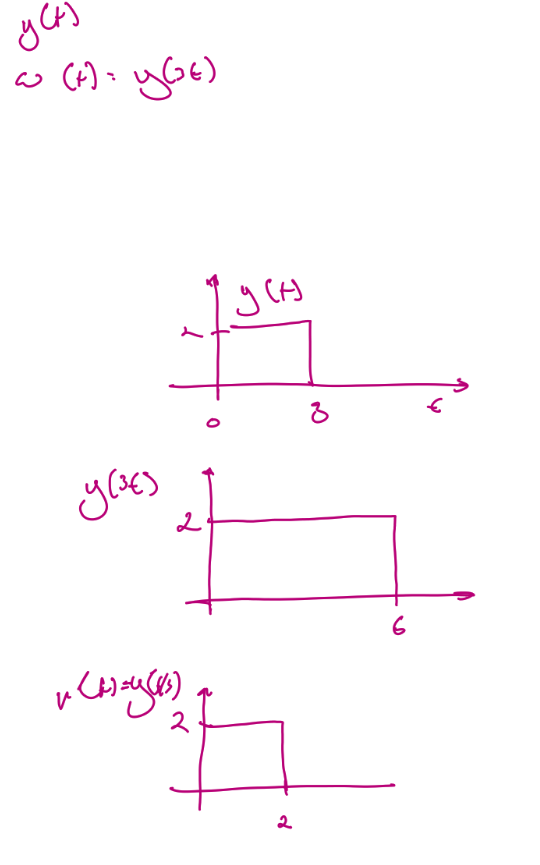 y(t)
ω (t) = y(3t)
y(t)
2
0
3
t
y(3t)
2
6
v(t)=y(t/3)
2
2